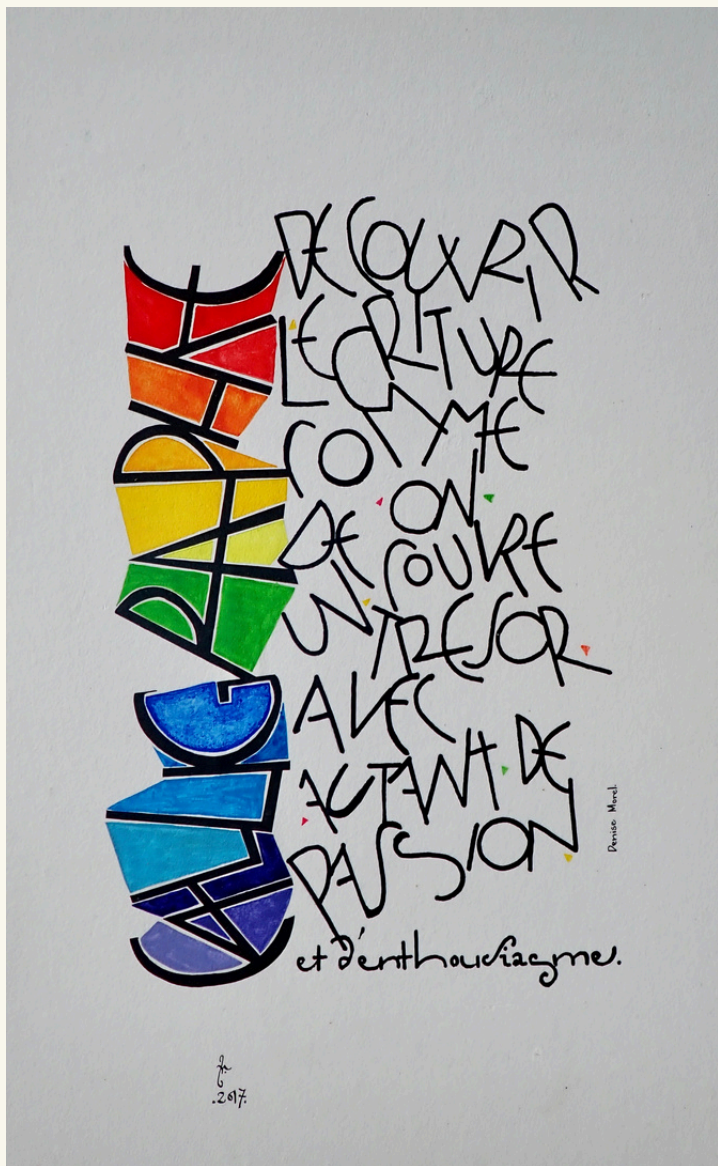 CALLIGRAPHIE
DECOUVRIR
L'ECRITURE
COMME
ON
DECOUVRE
UN TRESOR
AVEC
AUTANT DE
PASSION
et d'enthousiasme.
Denise Morel.
.2017.